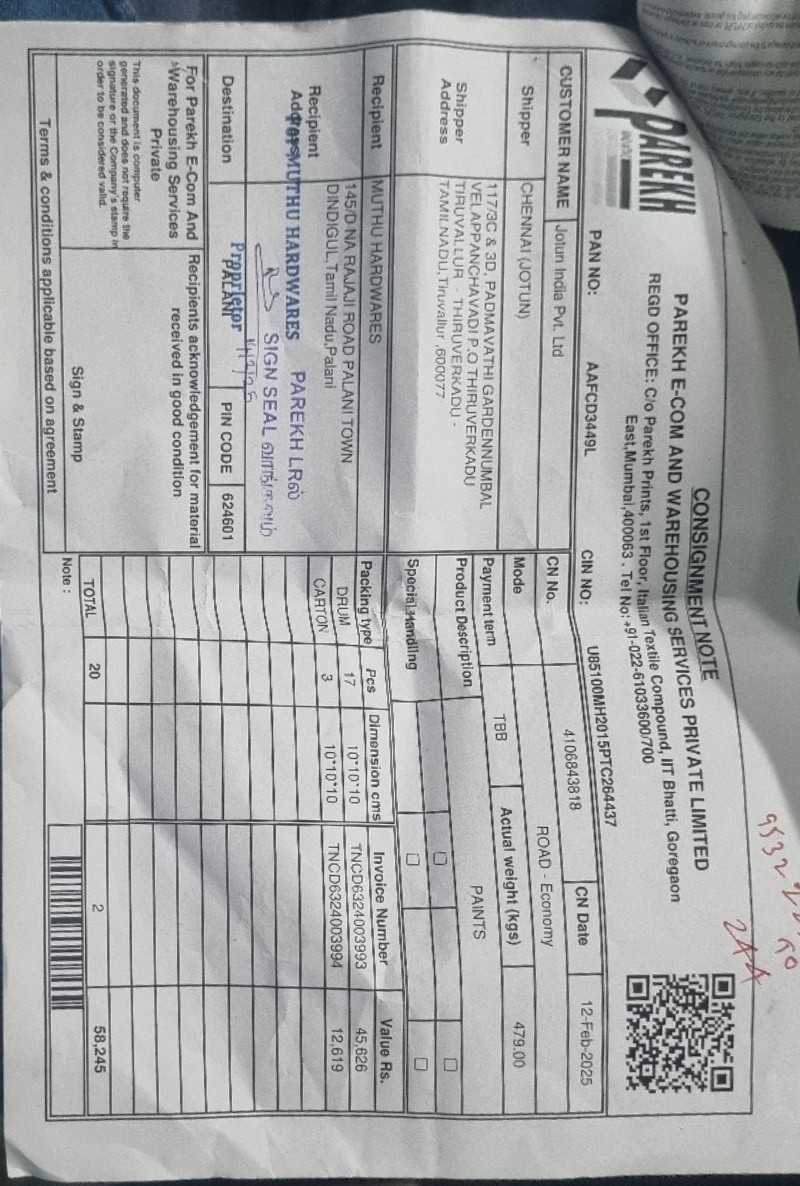 PAREKH
CONSIGNMENT NOTE
PAREKH E-COM AND WAREHOUSING SERVICES PRIVATE LIMITED
REGD OFFICE: C/o Parekh Prints, 1st Floor, Italian Textile Compound, IIT Bhatti, Goregaon
East,Mumbai,400063 . Tel No: +91-022-61033600/700
2AA
PAN NO: AAFCD3449L CIN NO: U85100MH2015PTC264437
CUSTOMER NAME Jotun India Pvt. Ltd
CN No. 4106843818 CN Date 12-Feb-2025
Shipper CHENNAI (JOTUN)
Mode ROAD - Economy
Payment term TBB Actual weight (kgs) 479.00
Shipper Address
117/3C & 3D, PADMAVATHI GARDENNUMBAL
VELAPPANCHAVADI P.O THIRUVERKADU
TIRUVALLUR - THIRUVERKADU -
TAMILNADU,Tiruvallur ,600077
Product Description PAINTS
Special Handling
Recipient MUTHU HARDWARES
Recipient Address
145/D NA RAJAJI ROAD PALANI TOWN
DINDIGUL,Tamil Nadu,Palani
For MUTHU HARDWARES
Proprietor
PAREKH LRல்
SIGN SEAL வாங்கவும்
Destination PALANI PIN CODE 624601
Packing type Pcs Dimension cms Invoice Number Value Rs.
DRUM 17 10*10*10 TNCD6324003993 45,626
CARTON 3 10*10*10 TNCD6324003994 12,619
TOTAL 20 2 58,245
For Parekh E-Com And
Warehousing Services
Private
Recipients acknowledgement for material
received in good condition
This document is computer
generated and does not require the
signature or the Company's stamp in
order to be considered valid.
Sign & Stamp
Note :
Terms & conditions applicable based on agreement